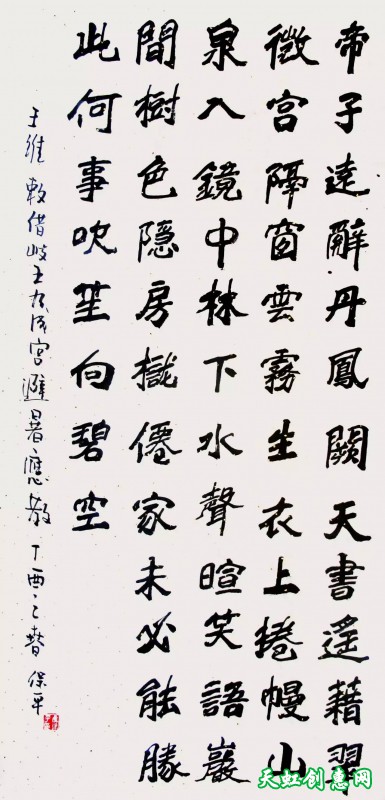 帝子遠辭丹鳳闕天書遙藉翠
微宮隔窗雲霧生衣上捲幔山
泉入鏡中林下水聲暄笑語巖
間樹色隱房櫳僊家未必能勝
此何事吹笙向碧空
王維敕借岐王九成宮避暑應教 丁酉之春 保平
天虹创意网